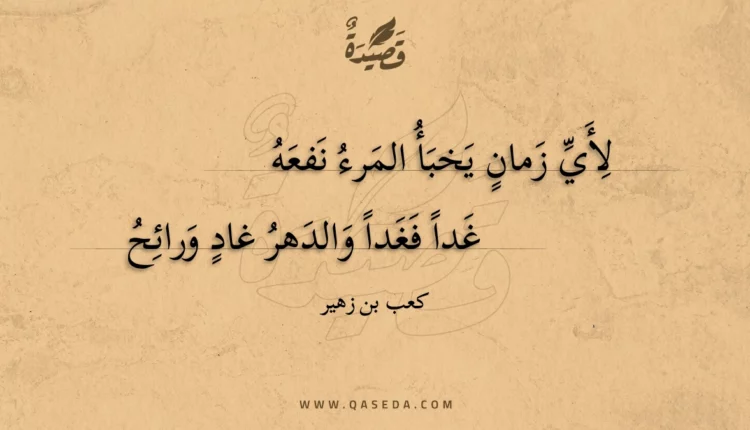 قَصِيْدَةٌ
لِأَيِّ زَمانٍ يَخبَأُ المَرءُ نَفعَهُ
غَداً فَغَداً وَالدَهرُ غادٍ وَرائِحُ
كعب بن زهير
WWW.QASEDA.COM